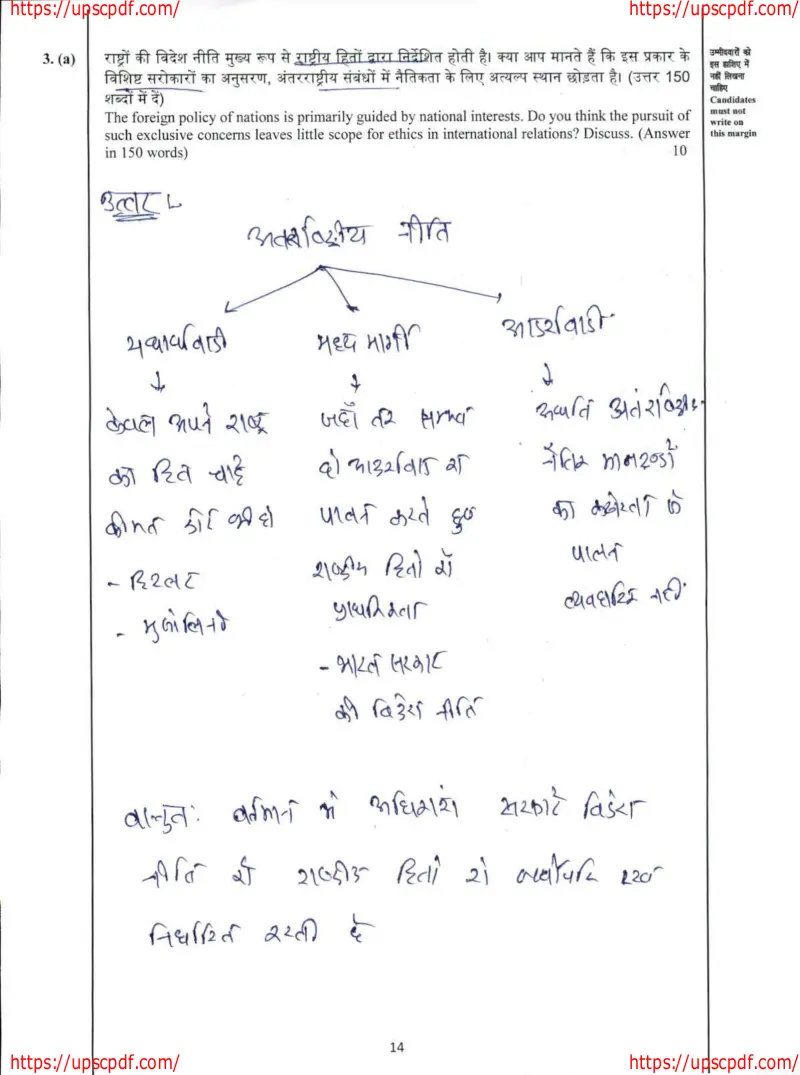 https://upscpdf.com/ https://upscpdf.com/
3. (a) राष्ट्रों की विदेश नीति मुख्य रूप से राष्ट्रीय हितों द्वारा निर्देशित होती है। क्या आप मानते हैं कि इस प्रकार के
विशिष्ट सरोकारों का अनुसरण, अंतरराष्ट्रीय संबंधों में नैतिकता के लिए अत्यल्प स्थान छोड़ता है। (उत्तर 150
शब्दों में दें)
The foreign policy of nations is primarily guided by national interests. Do you think the pursuit of
such exclusive concerns leaves little scope for ethics in international relations? Discuss. (Answer
in 150 words) 10
उम्मीदवारों को
इस हाशिए में
नहीं लिखना
चाहिए
Candidates
must not
write on
this margin
उत्तर
नीति
यथार्थवादी
केवल अपने राष्ट्र
का हित चाहे
कीमत कोई भी हो
- हिटलर
- मुसोलिनी
मध्य मार्गी
जहाँ तक सम्भव
हो आदर्शवाद का
पालन करते हुए
राष्ट्रीय हितों को
प्राथमिकता
- भारत सरकार
की विदेश नीति
आदर्शवादी
अर्थात
नैतिक मानदण्डों
का कठोरता से
पालन
व्यवहारिक नहीं
वस्तुतः वर्तमान में अधिकांश सरकारें विदेश
नीति को राष्ट्रीय हितों को सर्वोपरि रख
निर्धारित करती है
14
https://upscpdf.com/ https://upscpdf.com/